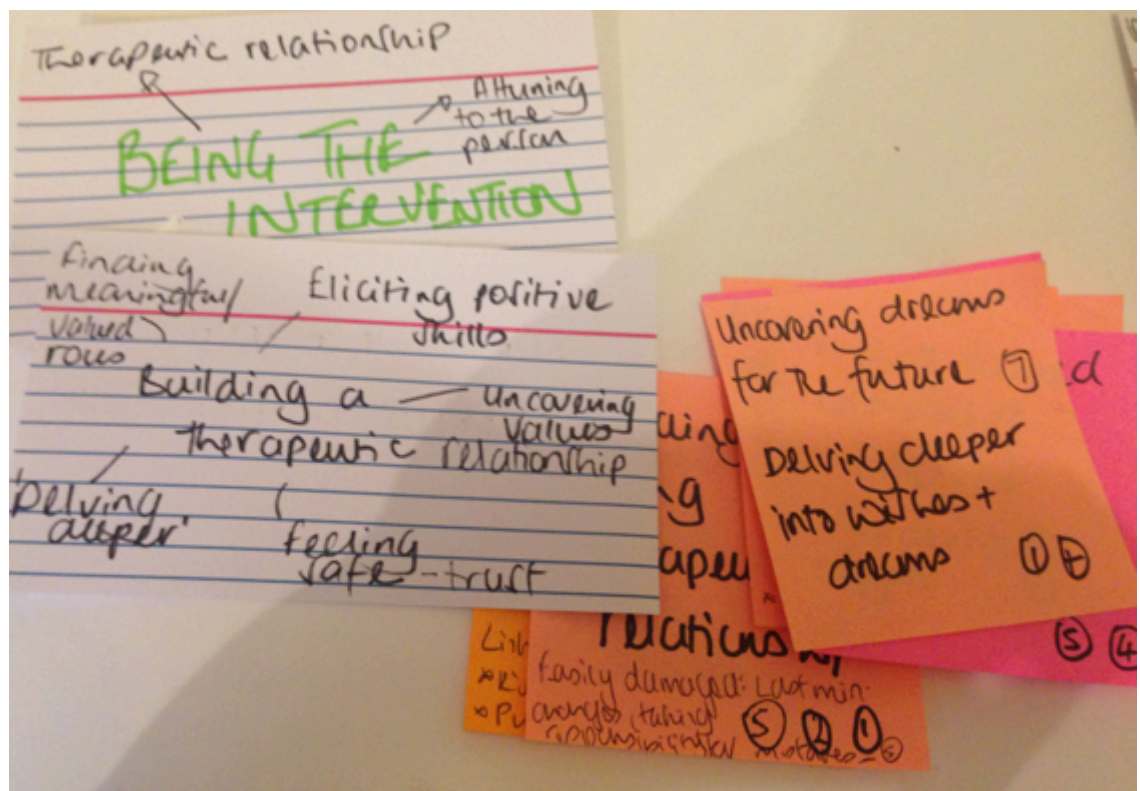 Therapeutic relationship
Attuning
to the
person
BEING THE
INTERVENTION
finding
meaningful/
valued
roles
Eliciting positive
skills
Building a
therapeutic relationship
uncovering
values
'Delving
deeper'
feeling
safe - trust
Uncovering dreams
for the future 7
Delving deeper
into wishes +
dreams 1 4
5 4
relationship
Easily damaged: Last min
changes, taking
responsibility for mistakes
5 2 1